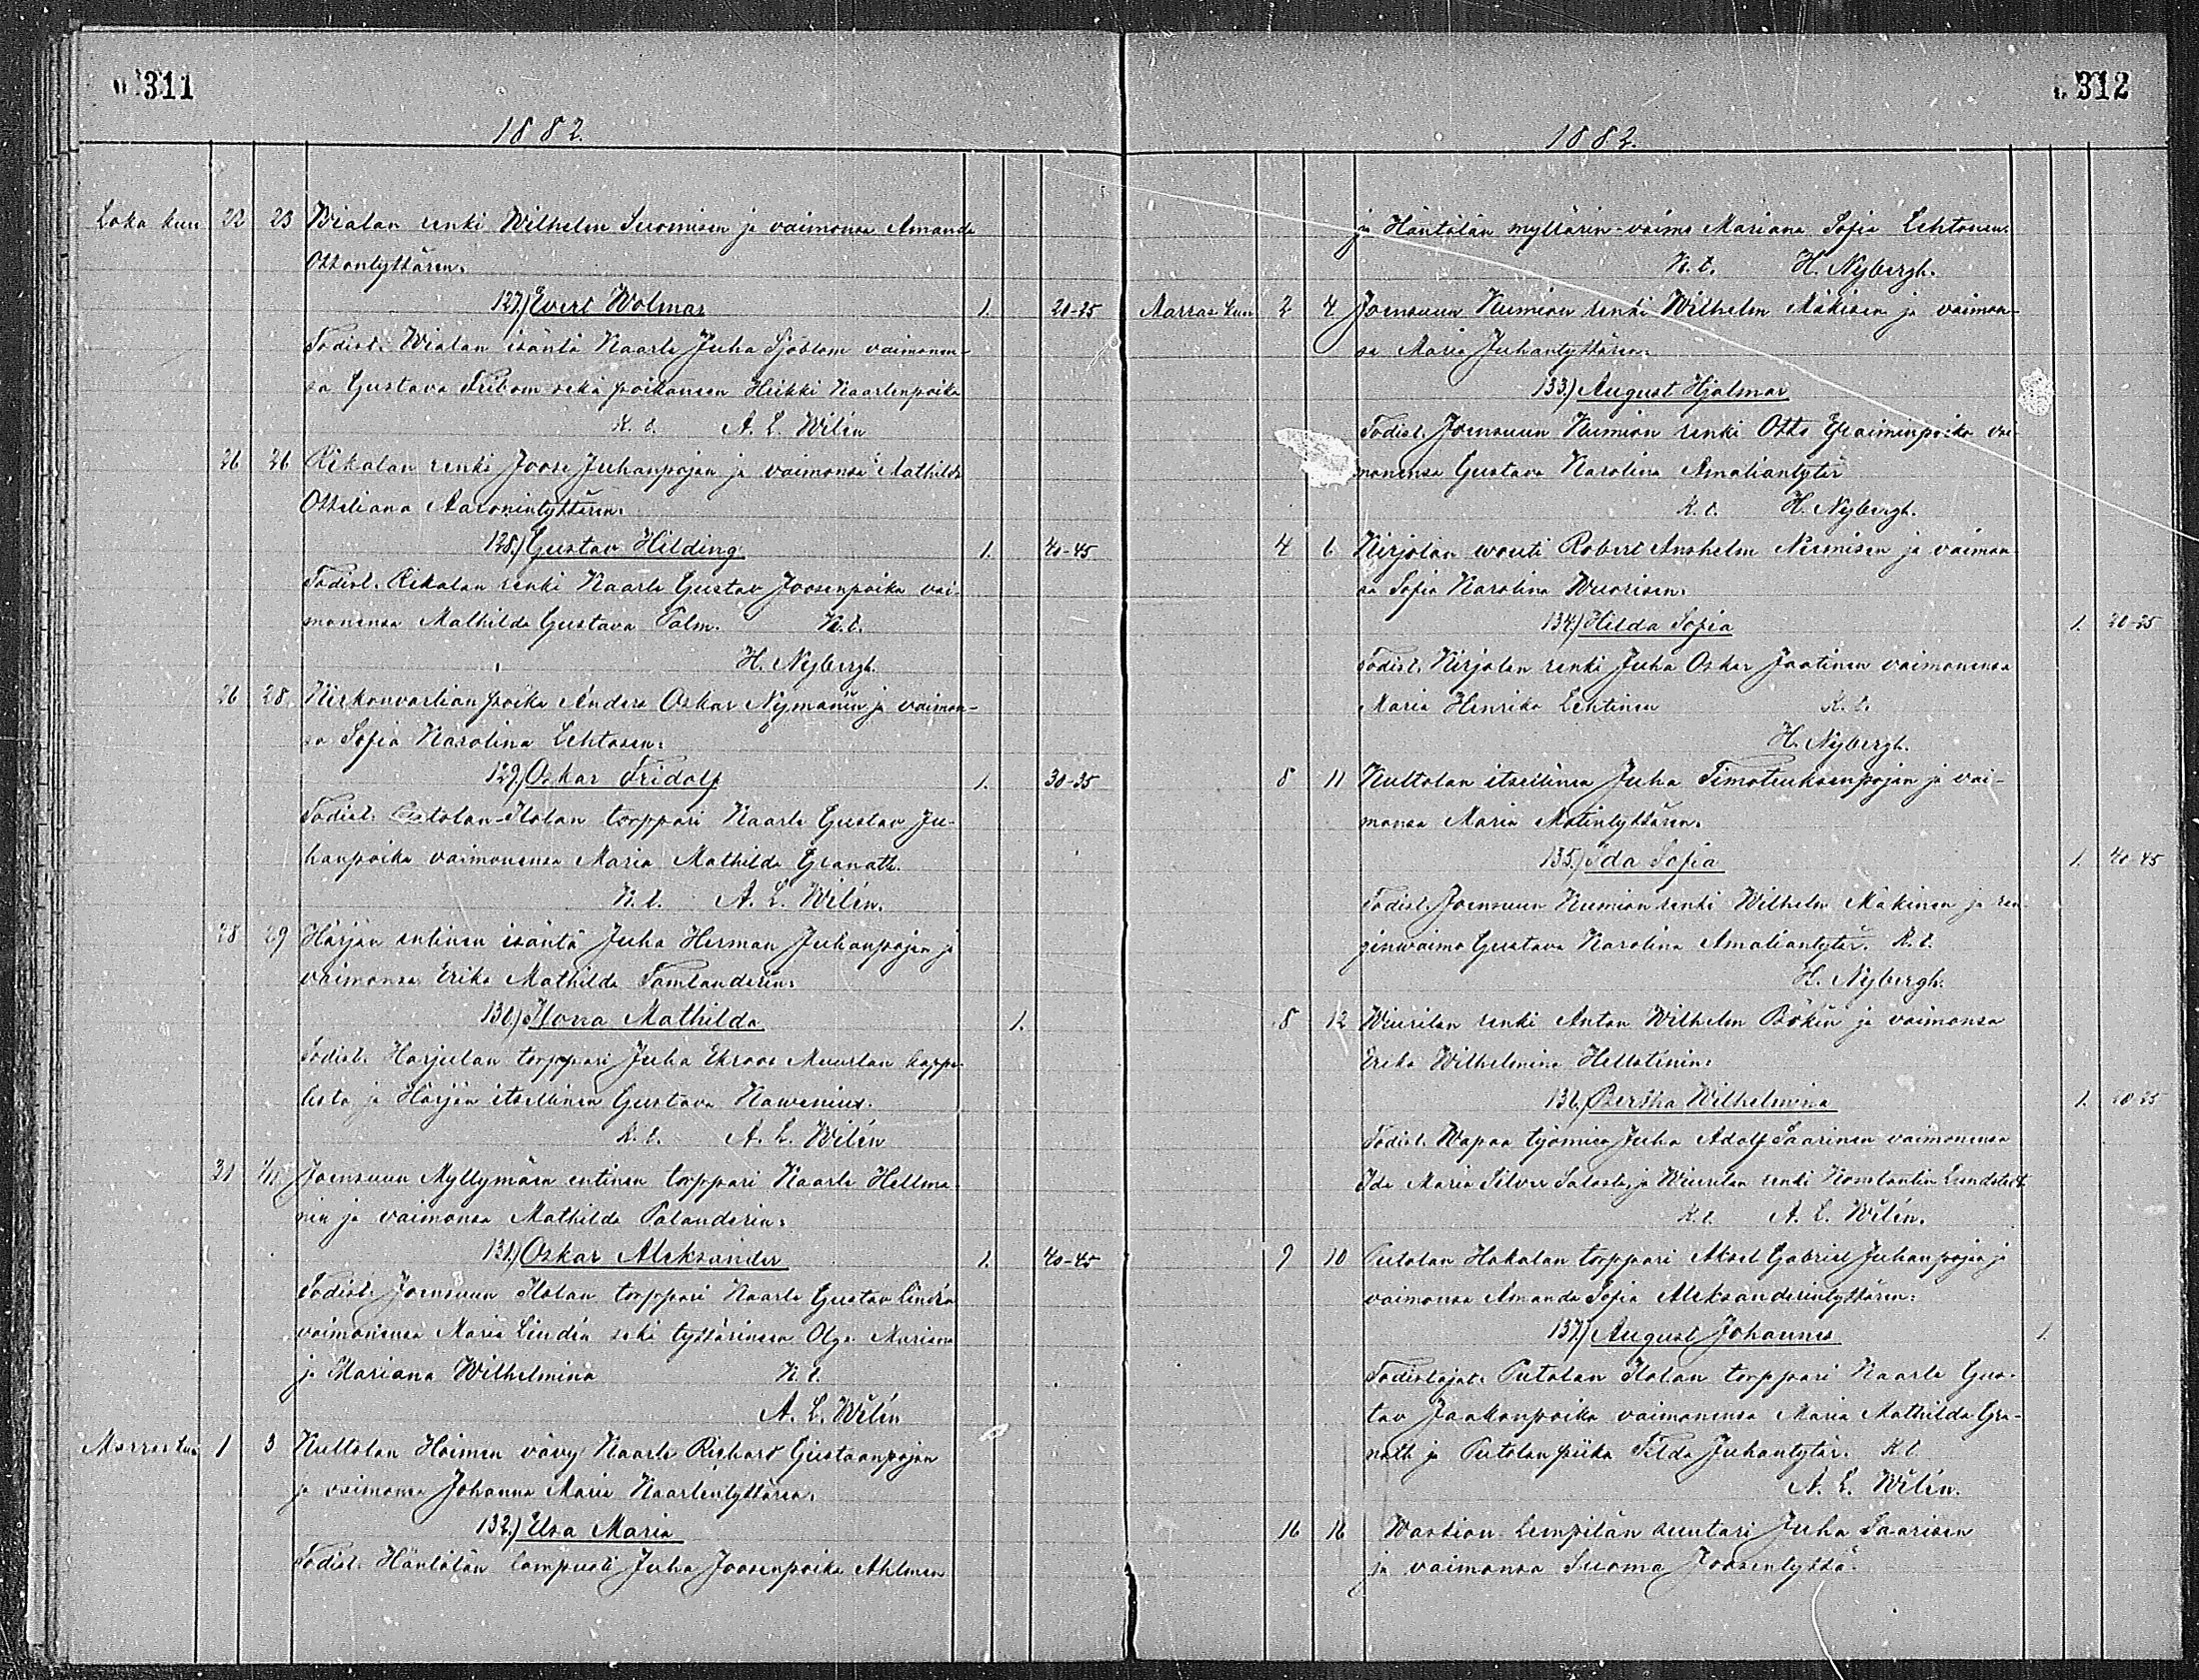 311
1882.
Loka kuu 22 23 Wialan renki Wilhelm Suomisen ja vaimonsa Amanda
Ottontyttären.
127.) Evert Wolmar 1. 20-25
Todist. Wialan isäntä Kaarle Juha Sjöblom vaimonen-
sa Gustava Fribom sekä poikansen Heikki Kaarlenpoika
K. t. A. L. Wilén
26 26 Rikalan renki Joose Juhanpojan ja vaimonsa Mathilda
Ottiliana Aaronintyttären.
128.) Gustav Hilding 1. 40-45
Todist. Rikalan renki Kaarle Gustav Joosenpoika vai-
monensa Mathilda Gustava Palm. K. t.
H. Nybergh.
26 28 Kirkonvartian poika Anders Oskar Nymanin ja vaimon-
sa Sofia Karolina Lehtosen.
129.) Oskar Fridolf 1. 30-35
Todist. Putolan-Ilolan torppari Kaarle Gustav Ju-
hanpoika vaimonensa Maria Mathilda Granath.
K. t. A. L. Wilén.
28 29 Härjän entinen isäntä Juha Herman Juhanpojan ja
vaimonsa Erika Mathilda Tamlanderin.
130.) Ilona Mathilda 1.
Todist. Harjulan torppari Juha Ekroos Muurlan kappe-
lista ja Härjän itsellinen Gustava Nawenius.
K. t. A. L. Wilén
31 Joensuun Myllymäen entinen torppari Kaarle Hellma-
nin ja vaimonsa Mathilda Palanderin.
131.) Oskar Aleksander 1. 40-45
Todist. Joensuun Ilolan torppari Kaarle Gustav Lindén
vaimonensa Maria Lindén sekä tyttärinsen Olga Mariana
ja Mariana Wilhelmina K. t.
A. L. Wilén
Marras kuu 1 3 Kultolan Heimen vävy Kaarle Richard Gustaanpojan
ja vaimonsa Johanna Maria Kaarlentyttären.
132.) Elsa Maria
Todist. Häntälän lampuoti Juha Joosenpoika Ahlmen
312
1882.
ja Häntälän myllärin-vaimo Mariana Sofia Lehtonen.
K. t. H. Nybergh.
Marras kuu 2 4 Joensuun Kumion renki Wilhelm Mäkisen ja vaimon-
sa Maria Juhantyttären.
133.) August Hjalmar
Todist. Joensuun Kumion renki Otto Efraiminpoika vai-
monensa Gustava Karolina Amaliantytär
K. t. H. Nybergh.
4 6 Kirjolan wouti Robert Anshelm Nurmisen ja vaimon-
sa Sofia Karolina Wuorisen.
134.) Hilda Sofia 1. 20-25
Todist. Kirjolan renki Juha Oskar Jaatinen vaimonensa
Maria Henrika Lehtinen K. t.
H. Nybergh.
8 11 Kultolan itsellinen Juha Timoteuksenpojan ja vai-
monsa Maria Matintyttären.
135.) Ida Sofia 1. 40-45
Todist. Joensuun Kumion renki Wilhelm Mäkinen ja ren-
ginwaimo Gustava Karolina Amaliantytär. K. t.
H. Nybergh.
8 12 Wiurilan renki Anton Wilhelm Bökin ja vaimonsa
Erika Wilhelmina Hellsténin.
136.) Bertha Wilhelmina 1. 20-25
Todist. Wapaa työmies Juha Adolf Saarinen vaimonensa
Ida Maria Silver Salosta, ja Wiurilan renki Konstantin Lundstedt
K. t. A. L. Wilén.
9 10 Putolan Hakalan torppari Aksel Gabriel Juhanpojan ja
vaimonsa Amanda Sofia Aleksanderintyttären.
137.) August Johannes 1.
Todistajat. Putolan Ilolan torppari Kaarle Gus-
tav Jaakonpoika vaimonensa Maria Mathilda Gra-
nath ja Putolan piika Tilda Juhantytär. K. t.
A. L. Wilén.
16 16 Waskion Lempilän suutari Juha Saarisen
ja vaimonsa Suoma Joosentyttä.